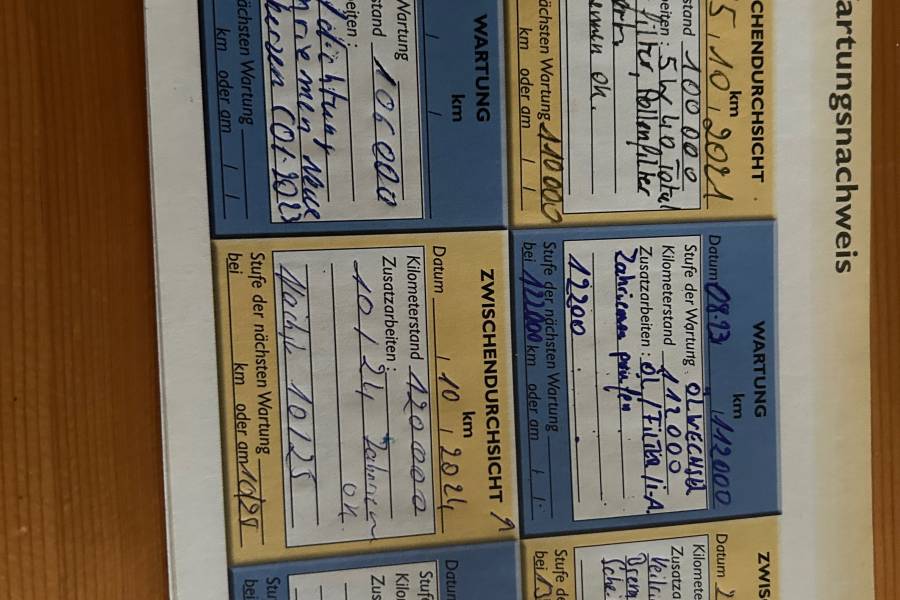 artungsnachweis
CHENDURCHSICHT
km
5, 10, 2021
stand 100 000
beiten: 5W40 Total
filter, Pollenfilter
emen ok.
ächsten Wartung 110000
km oder am
WARTUNG
km
Datum 08.23 112000
Stufe der Wartung ÖLWECHSEL
Kilometerstand 112000
Zusatzarbeiten: ÖL/Filter/i.A.
Zahnriemen prüfen
12200
Stufe der nächsten Wartung
bei 122000 km oder am
ZWIS
Datum 2
Kilomete
Zusatza
Stufe de
bei
WARTUNG
km
Wartung
stand 106000
eiten:
dichtung
riemen neue
kerzen (01.2023
ächsten Wartung
km oder am
ZWISCHENDURCHSICHT
km
Datum 10 2024
Kilometerstand 120000
Zusatzarbeiten:
10/24 Zahnriemen
ok.
Nächste 10/25
Stufe der nächsten Wartung
bei km oder am 10/25
Datum
Stuf
Kilo
Zus
Stu
bei